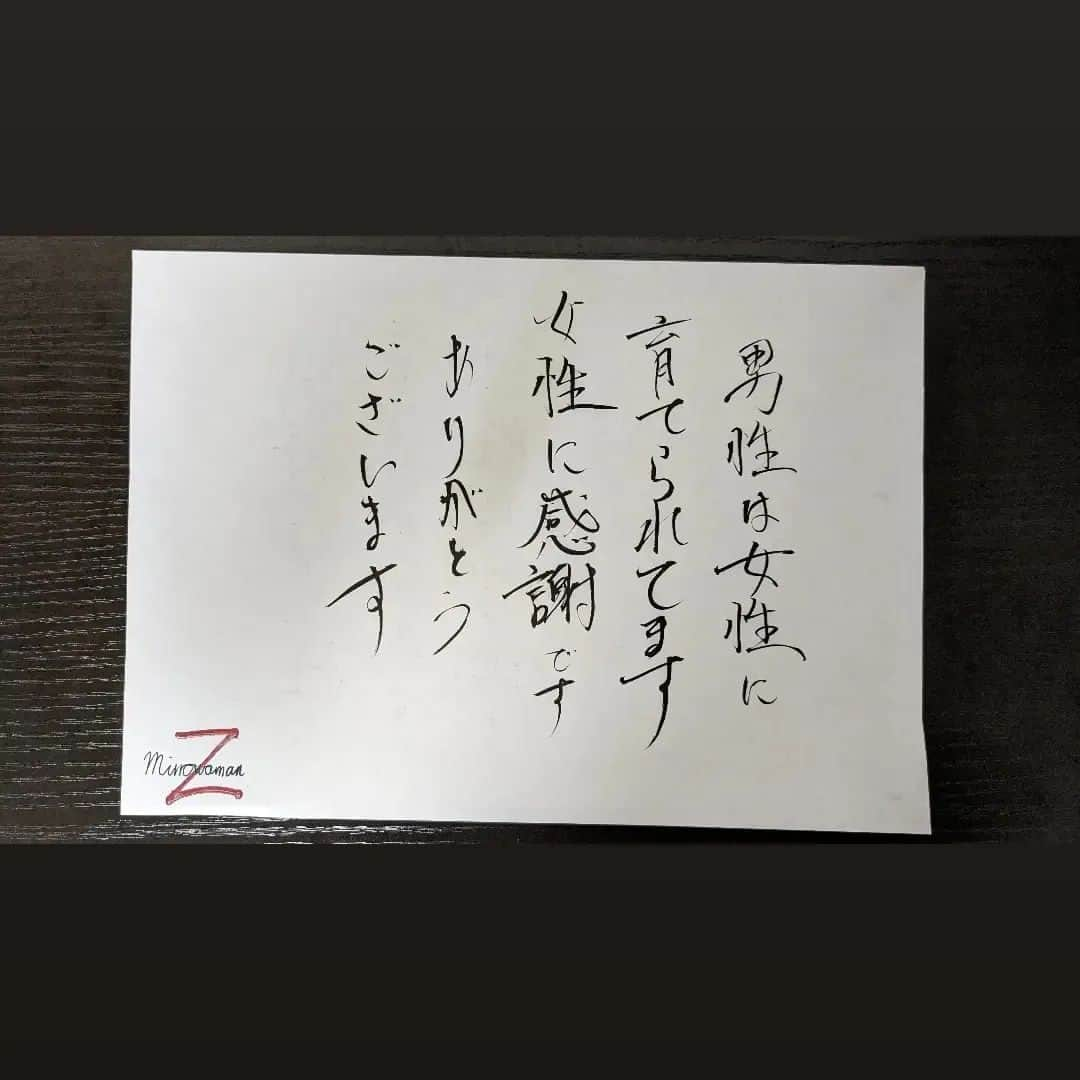 男性は女性に
育てられてます
女性に感謝です
ありがとう
ございます
Z